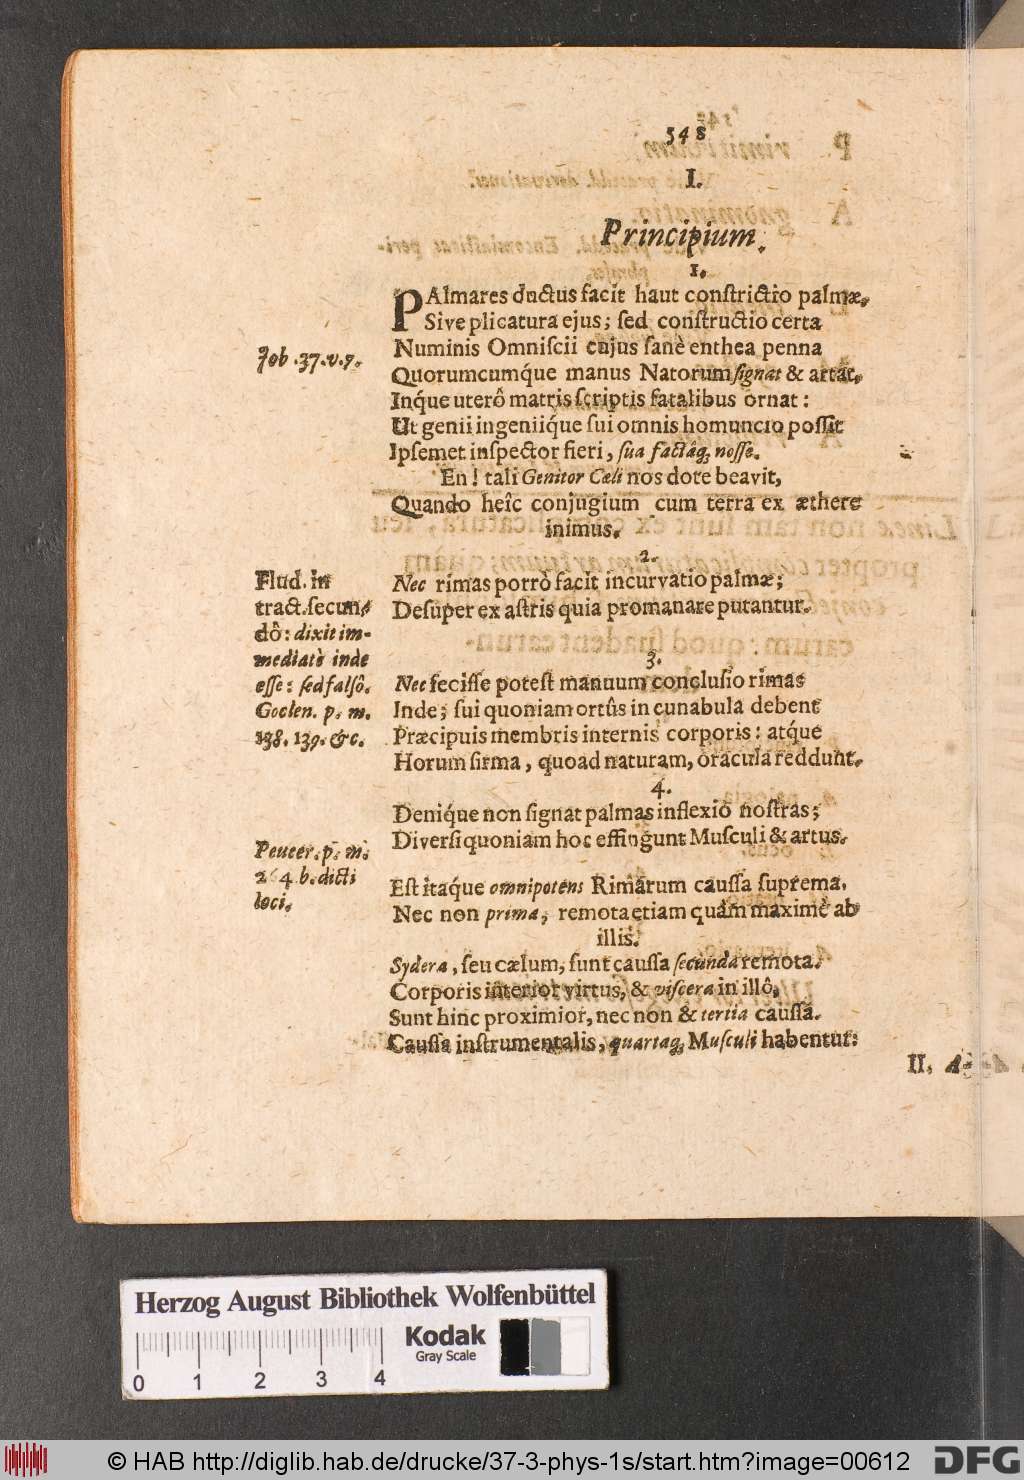 548
I.
Principium.
1.
PAlmares ductus facit haut conſtrictio palmæ,
Sive plicatura ejus; ſed conſtructio certa
Numinis Omniſcii cujus ſanè enthea penna
Job. 37. v. 7.
Quorumcumq́ue manus Natorum ſignat & artat,
Inq́ue uterô matris ſcriptis fatalibus ornat:
Ut genii ingeniiq́ue ſui omnis homuncio poſſit
Ipſemet inſpector fieri, ſua factáq; noſſe.
En! tali Genitor Cæli nos dote beavit,
Quando heîc conjugium cum terra ex æthere
inimus.
2.
Flud. in
tract. ſecun-
dô: dixit im-
mediatè inde
eſſe: ſed falſô.
Goclen. p. m.
138. 139. &c.
Nec rimas porrò facit incurvatio palmæ;
Deſuper ex aſtris quia promanare putantur.
3.
Nec feciſſe poteſt manuum concluſio rimas
Inde; ſui quoniam ortûs in cunabula debent
Præcipuis membris internis corporis: atq́ue
Horum firma, quoad naturam, oracula reddunt.
4.
Deniq́ue non ſignat palmas inflexio noſtras;
Diverſi quoniam hoc effingunt Muſculi & artus.
Peucer. p. m.
264. b. dicti
loci.
Eſt itaq́ue omnipotens Rimarum cauſſa ſuprema,
Nec non prima, remota etiam quàm maximè ab
illis.
Sydera, ſeu cælum, ſunt cauſſa ſecunda remota.
Corporis interior virtus, & viſcera in illô,
Sunt hinc proximior, nec non & tertia cauſſa.
Cauſſa inſtrumentalis, quartaq; Muſculi habentur:
II.
Herzog August Bibliothek Wolfenbüttel
Kodak
Gray Scale
0 1 2 3 4
© HAB http://diglib.hab.de/drucke/37-3-phys-1s/start.htm?image=00612
DFG